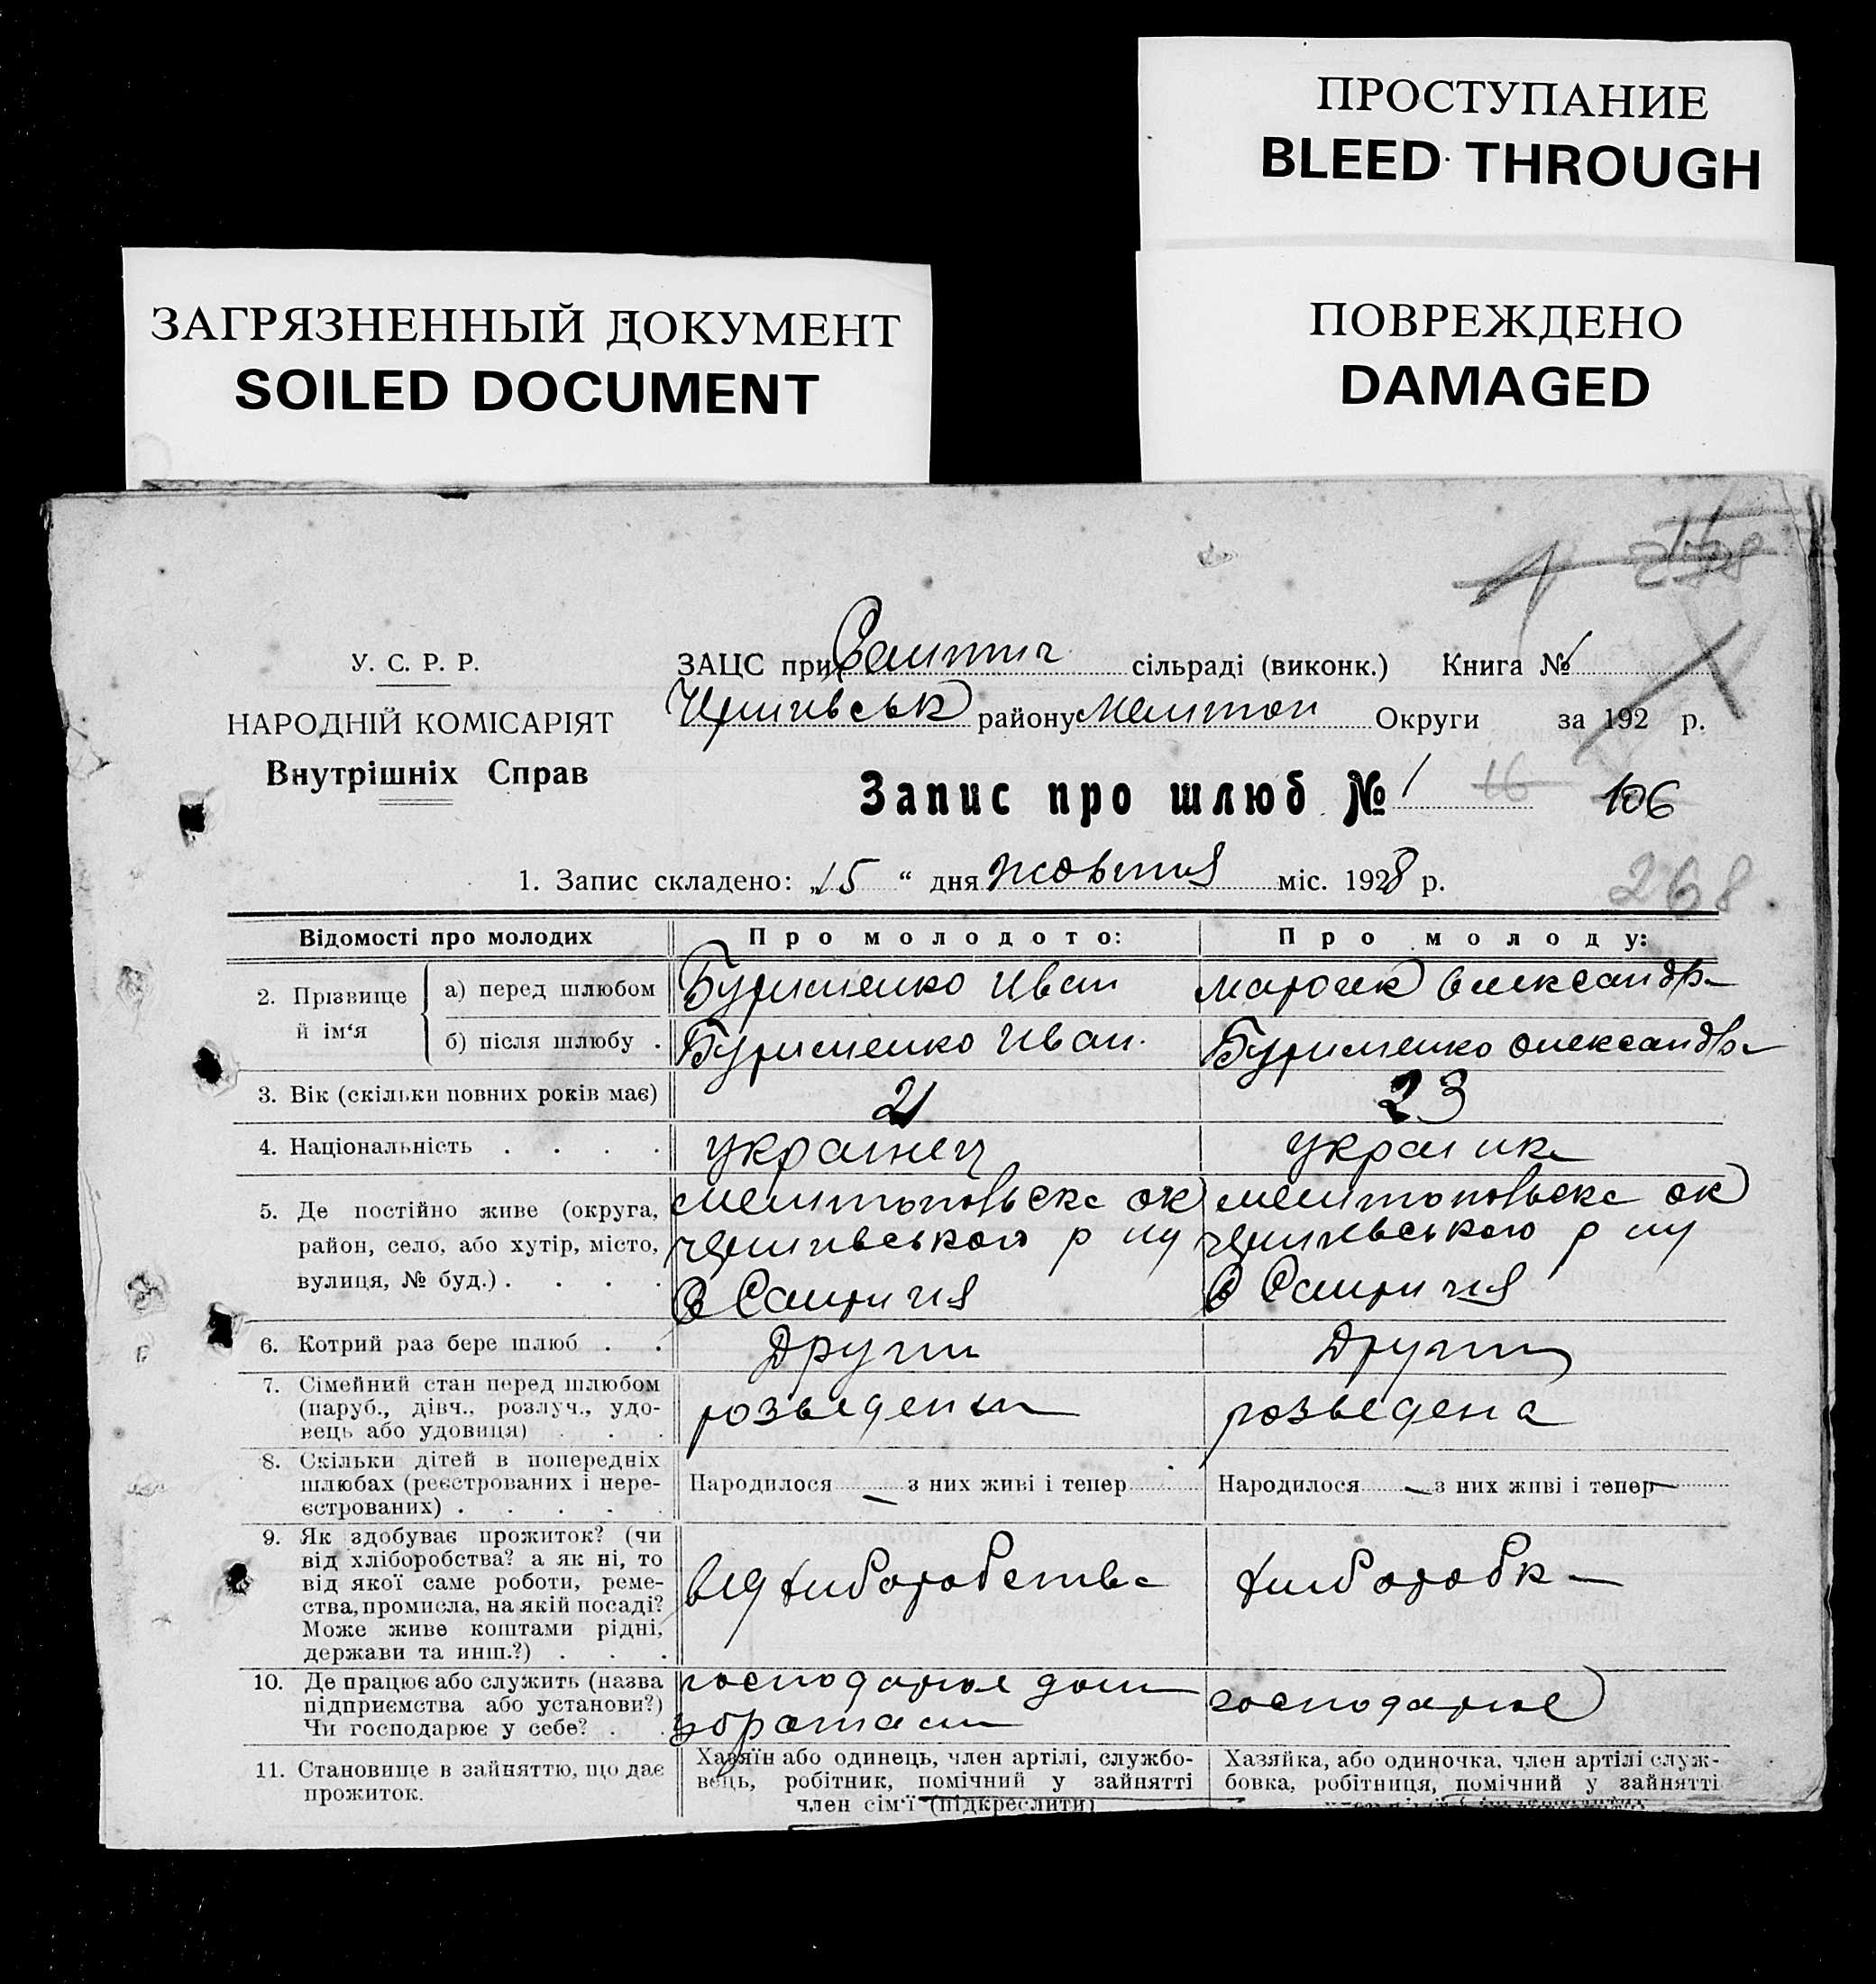 ПРОСТУПАНИЕ
BLEED THROUGH
ЗАГРЯЗНЕННЫЙ ДОКУМЕНТ
SOILED DOCUMENT
ПОВРЕЖДЕНО
DAMAGED
У. С. Р. Р.
НАРОДНІЙ КОМІСАРІЯТ
Внутрішніх Справ
ЗАЦС при сільраді (виконк.) Книга № 1
району Округи за 192 р.
Запис про шлюб № 1 16 106
1. Запис складено: „15“ дня жовтня міс. 1928 р.
268
Відомості про молодих Про молодого: Про молоду:
2. Прізвище й ім‘я
а) перед шлюбом Буряченко Иван Олександра
б) після шлюбу . Буряченко Иван. Буряченко Олександра
3. Вік (скільки повних років має) 21 23
4. Національність . . . . українец украинка
5. Де постійно живе (округа,
район, село, або хутір, місто,
вулиця, № буд.) . . . .
Мелитопольська ок Мелитопольска ок
Чернигівського р ну Чернигівського р ну
6. Котрий раз бере шлюб . . Други Други
7. Сімейний стан перед шлюбом
(паруб., дівч., розлуч., удо-
вець або удовиця) . . .
розведени розведена
8. Скільки дітей в попередніх
шлюбах (реєстрованих і нере-
єстрованих) . . . . .
Народилося — з них живі і тепер Народилося — з них живі і тепер —
9. Як здобуває прожиток? (чи
від хліборобства? а як ні, то
від якої саме роботи, реме-
ства, промисла, на якій посаді?
Може живе коштами рідні,
держави та инш.?) . . .
від хліборобства хліборобка
10. Де працює або служить (назва
підприємства або установи?)
Чи господарює у себе? . .
господарює дома
з братами
господарює
11. Становище в зайняттю, що дає
прожиток.
Хазяїн або одинець, член артілі, службо-
вець, робітник, помічний у зайнятті
член сім‘ї (підкреслити)
Хазяйка, або одиночка, член артілі служ-
бовка, робітниця, помічний у зайнятті